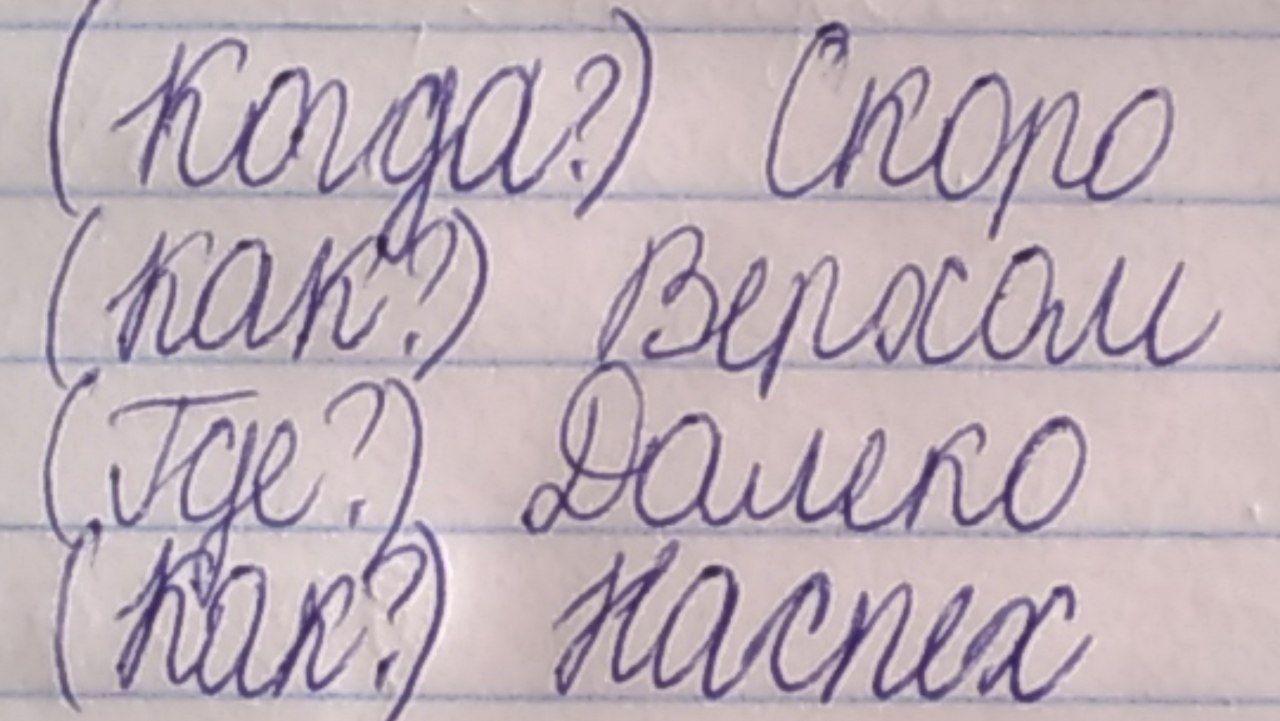 (Когда?) Скоро
(как?) Верхом
(Где?) Далеко
(как?) Наспех